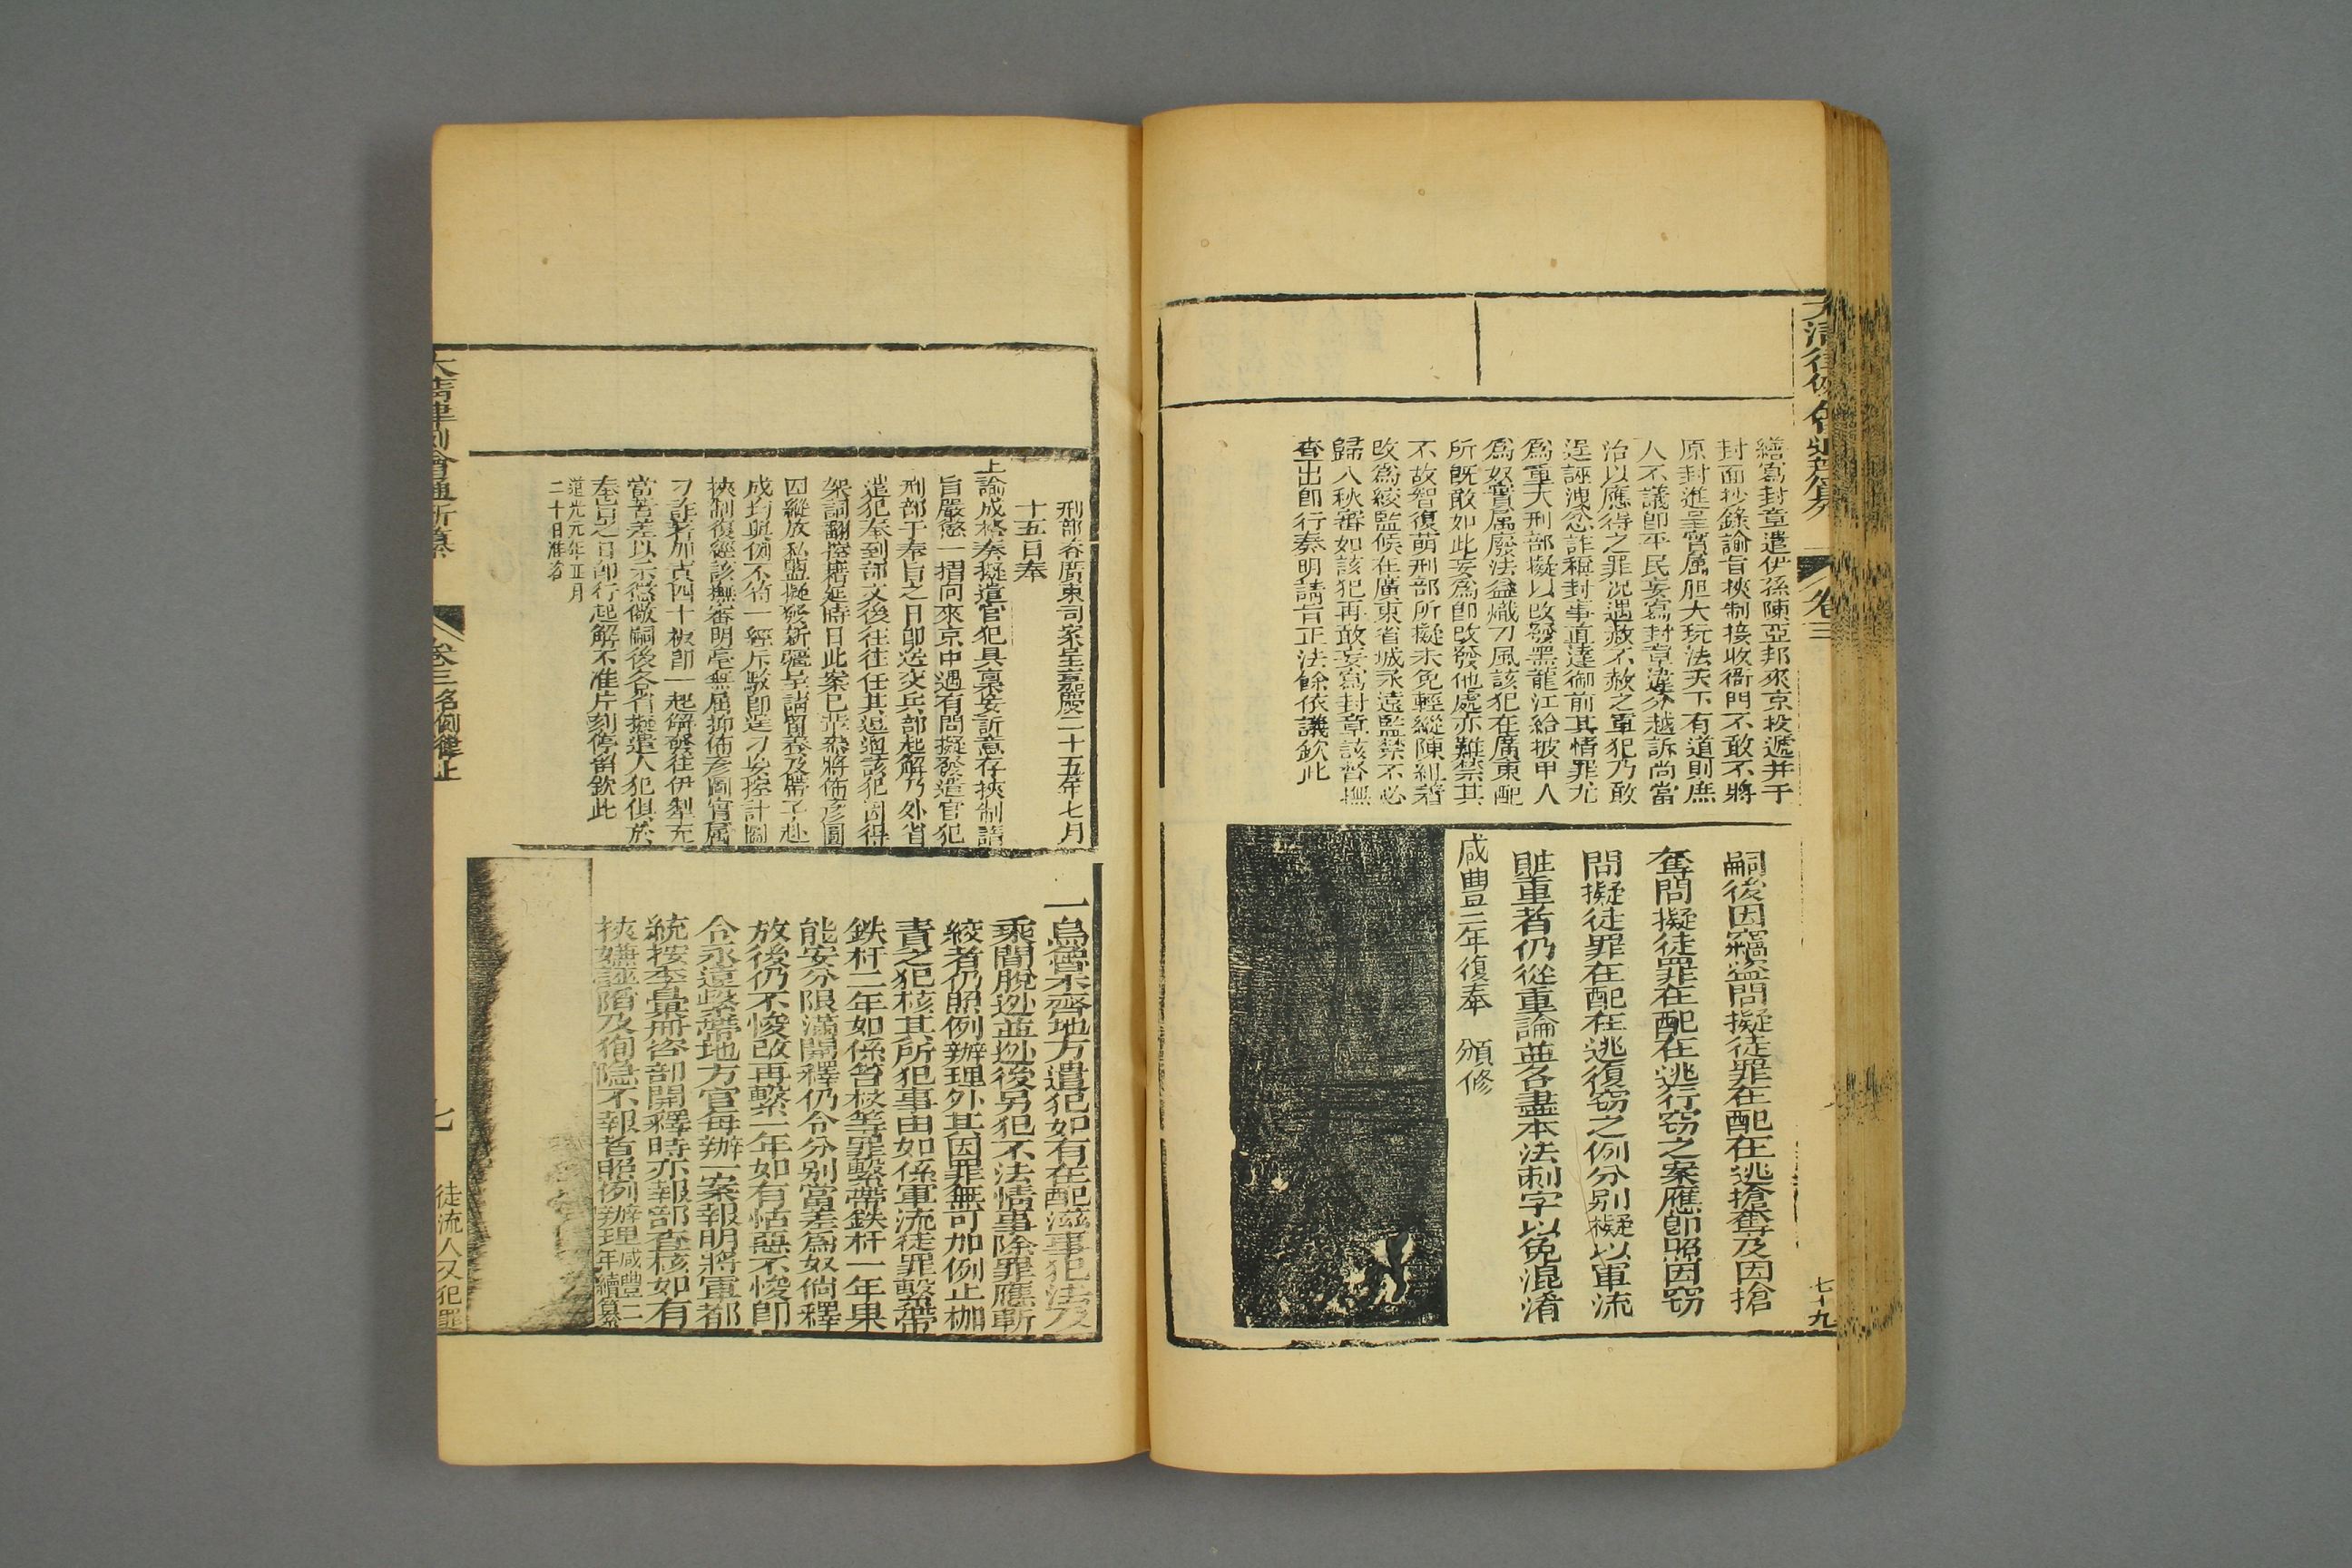 大清律例會通新纂
卷三
七十九
繕寫封章遣伊孫陳亞邦來京投遞并于
封面抄錄諭旨挾制接收衙門不敢不將
原封進呈實属胆大玩法天下有道則庶
人不議即平民妄寫封章違分越訴尚當
治以應得之罪况遇赦不赦之軍犯乃敢
逞誣洩忿詐稱封事直達御前其情罪尤
爲重大刑部擬以改發黑龍江給披甲人
爲奴實属廢法益熾刁風該犯在廣東配
所旣敢如此妄爲即改發他處亦難禁其
不故智復萌刑部所擬未免輕縱陳紹著
改爲絞監候在廣東省城永遠監禁不必
歸入秋審如該犯再敢妄寫封章該督撫
查出卽行奏明請旨正法餘依議欽此
嗣後因竊盜問擬徒罪在配在逃搶奪及因搶
奪問擬徒罪在配在逃行窃之案應卽照因窃
問擬徒罪在配在逃復窃之例分别擬以軍流
賍重者仍從重論並各盡本法刺字以免混淆
咸豊二年復奉 頒修
刑部各廣東司案呈嘉慶二十五年七月
十五日奉
上諭成格奏擬遣官犯具稟妄訴意存挾制請
旨嚴懲一摺向來京中遇有問擬發遣官犯
刑部于奉旨之日卽送交兵部起解乃外省
遣犯奉到部文後往往任其逗遛該犯因得
架詞翻控藉延時日此案已革恭將佈彥圖
因縱放私盬擬發新疆呈請留養及帶子赴
成均與例不符一經斥駁卽逞刁妄控計圖
挾制復經該撫審明毫無屈抑佈彥圖實属
刁詐著加責四十板卽一起解發往伊犁充
當苦差以示懲儆嗣後各省擬遣人犯俱於
奉旨之日卽行起解不准片刻停留欽此
道光元年正月
二十日准咨
一烏魯木齊地方遣犯如有在配滋事犯法及
乘間脫逃並逃後另犯不法情事除罪應斬
絞者仍照例辦理外其因罪無可加例止枷
責之犯核其所犯事由如係軍流徒罪繫帶
鉄杆二年如係笞杖等罪繫帶鉄杆一年果
能安分限滿開釋仍令分别當差爲奴倘釋
放後仍不悛改再繫二年如有怙惡不悛卽
令永遠繫帶地方官每辦一案報明將軍都
統按季彙冊咨部開釋時亦報部查核如有
挾嫌誣陷及狥隐不報者照例辦理咸豐二年續纂
大清律例會通新纂
卷三名例律上
七
徒流人又犯罪